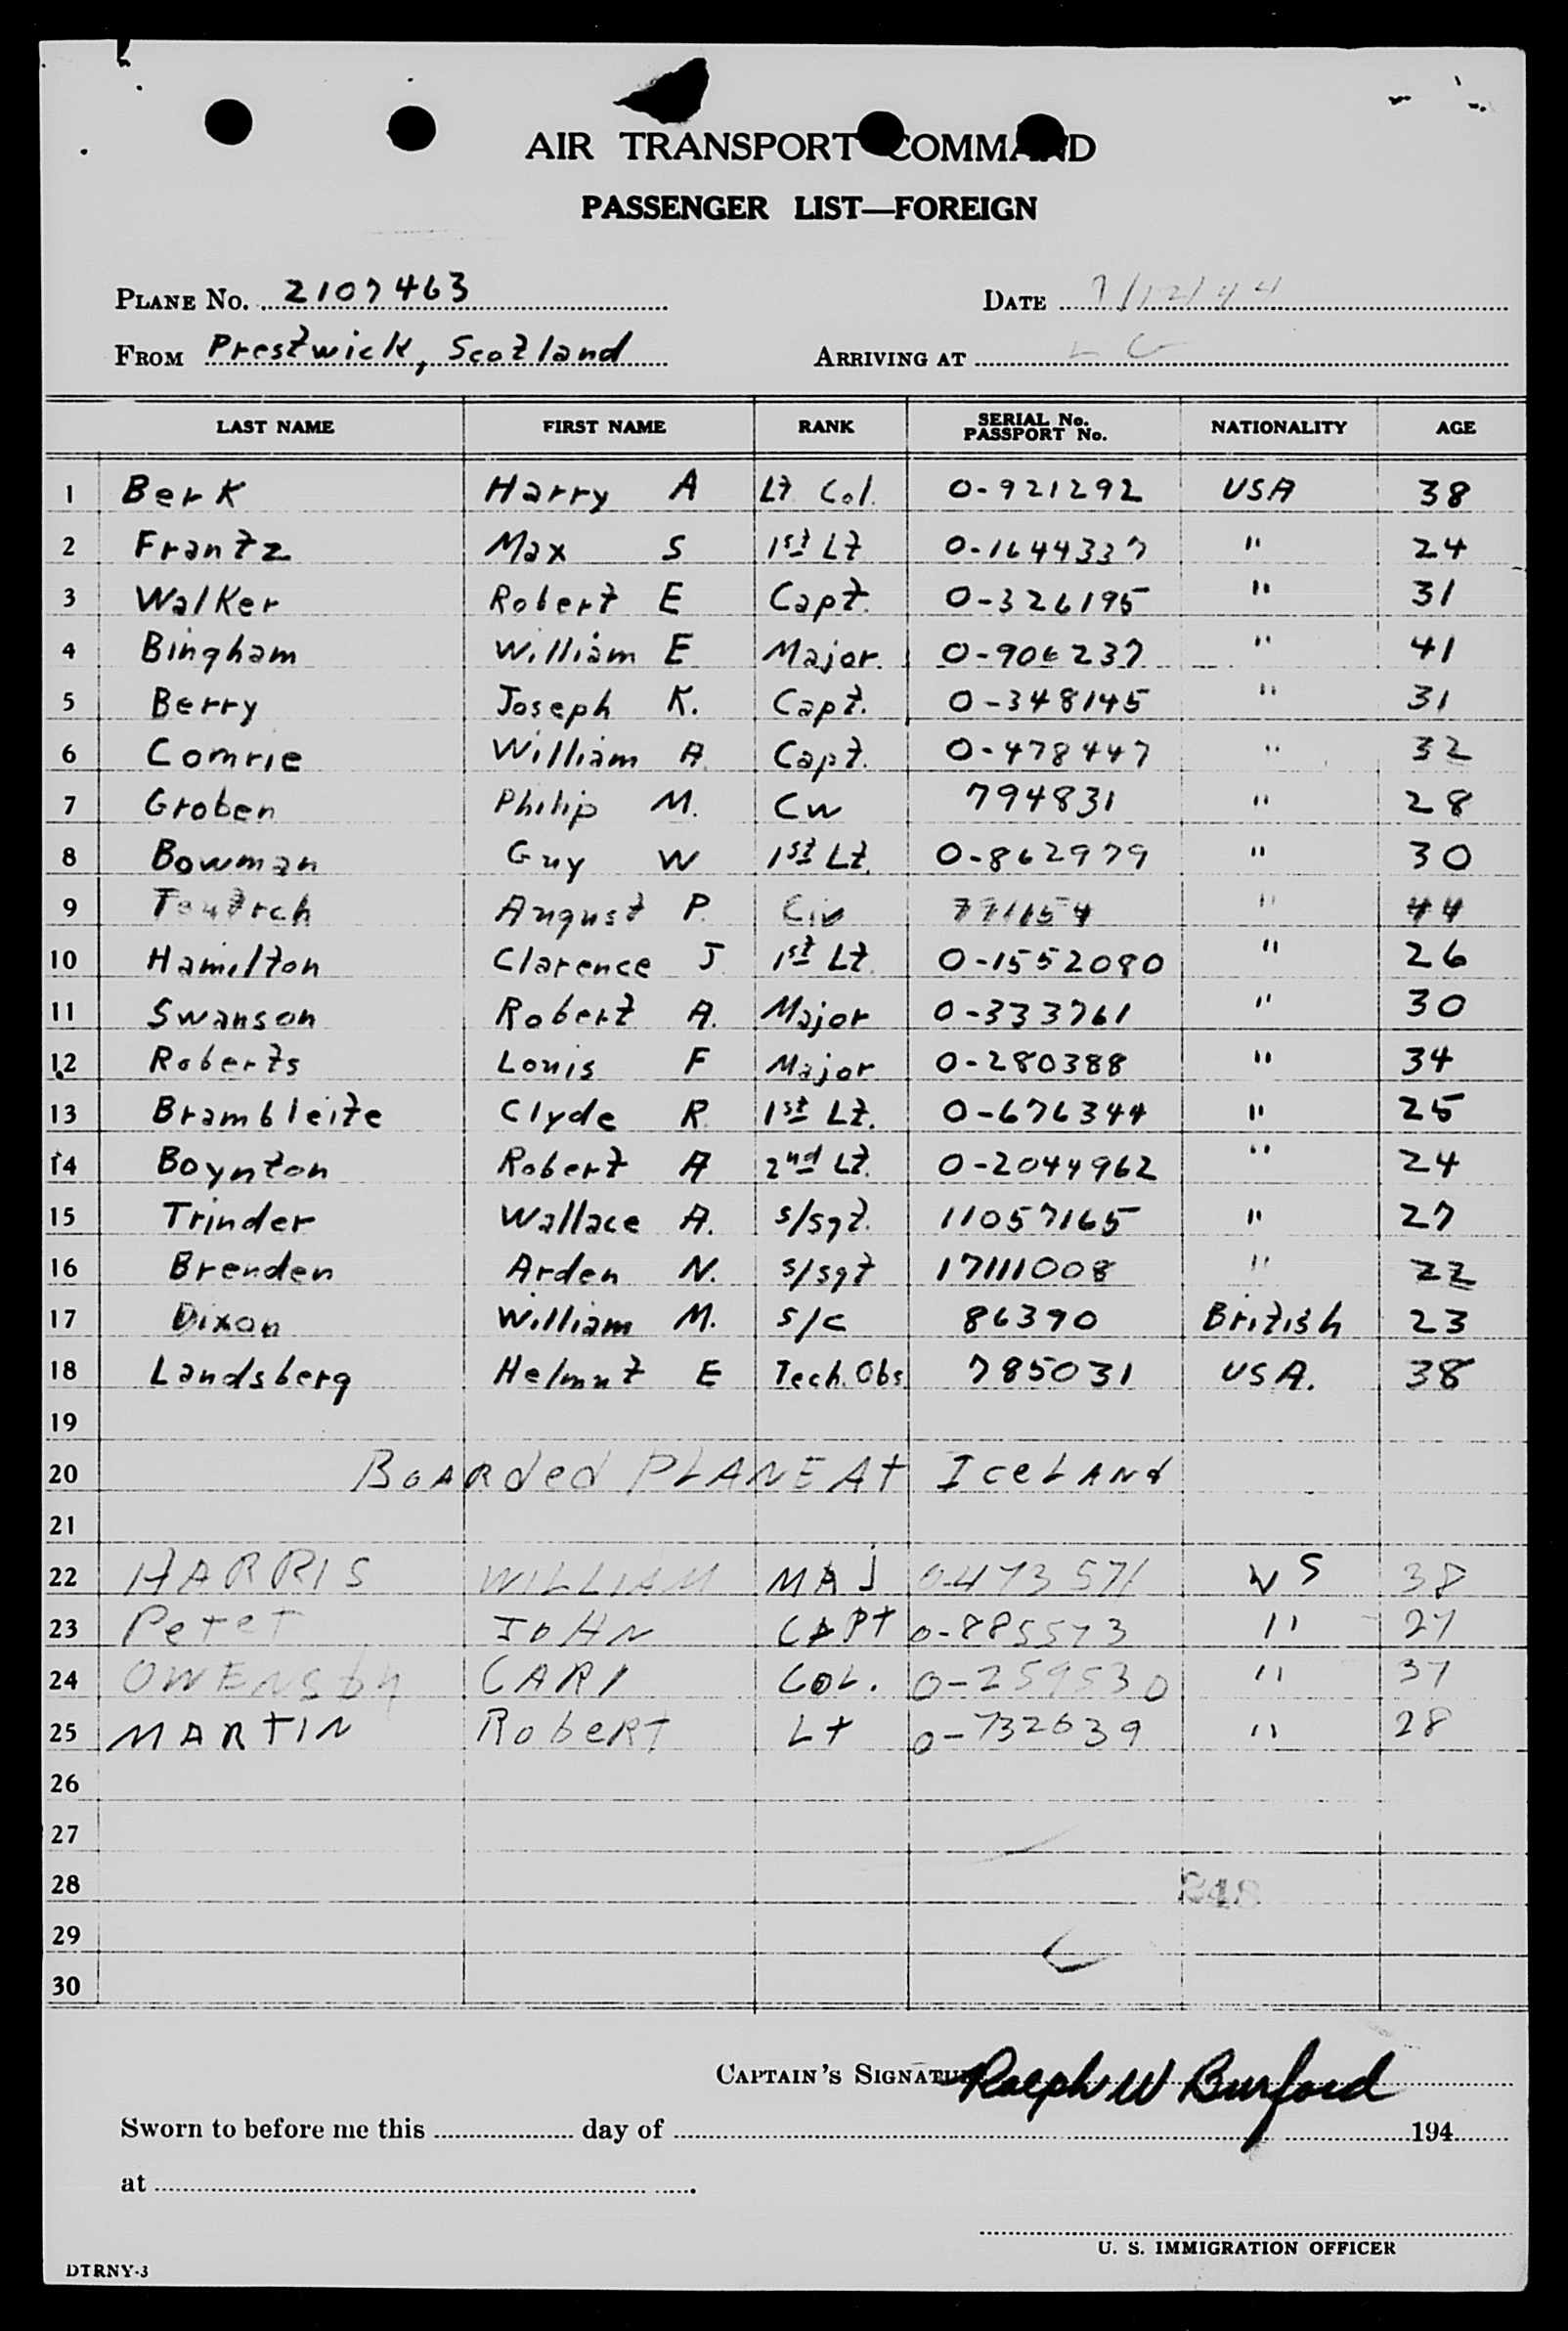 AIR TRANSPORT COMMAND
PASSENGER LIST—FOREIGN
PLANE No. 2107463 DATE 7/12/44
FROM Prestwick, Scotland ARRIVING AT L G
LAST NAME FIRST NAME RANK SERIAL No. PASSPORT No. NATIONALITY AGE
1 Berk Harry A Lt Col. 0-921292 USA 38
2 Frantz Max S 1st Lt 0-1644337 " 24
3 Walker Robert E Capt. 0-326195 " 31
4 Bingham William E Major. 0-906237 " 41
5 Berry Joseph K. Capt. 0-348145 " 31
6 Comrie William A. Capt. 0-478447 " 32
7 Groben Philip M. Cw 794831 " 28
8 Bowman Guy W 1st Lt. 0-862979 " 30
9 August P. Civ 791154 " 44
10 Hamilton Clarence J. 1st Lt. 0-1552080 " 26
11 Swanson Robert A. Major 0-333761 " 30
12 Roberts Louis F Major 0-280388 " 34
13 Brambleite Clyde R. 1st Lt. 0-676344 " 25
14 Boynton Robert A 2nd Lt. 0-2044962 " 24
15 Trinder Wallace A. S/Sgt. 11057165 " 27
16 Brenden Arden N. S/Sgt 17111008 " 22
17 Dixon William M. S/C 86390 British 23
18 Landsberg Helmut E Tech. Obs. 785031 USA. 38
19
20 BOARded PLANE At IceLANd
21
22 HARRIS WILLIAM MAJ 0-473571 US 38
23 PeteT JOHN CAPT 0-885573 " 27
24 OWENSby CARl COL. 0-259530 " 37
25 MARTIN RobeRt Lt 0-732639 " 28
26
27
28 248
29
30
CAPTAIN'S SIGNATURE Ralph W Burford
Sworn to before me this day of 194
at
U. S. IMMIGRATION OFFICER
DTRNY-3